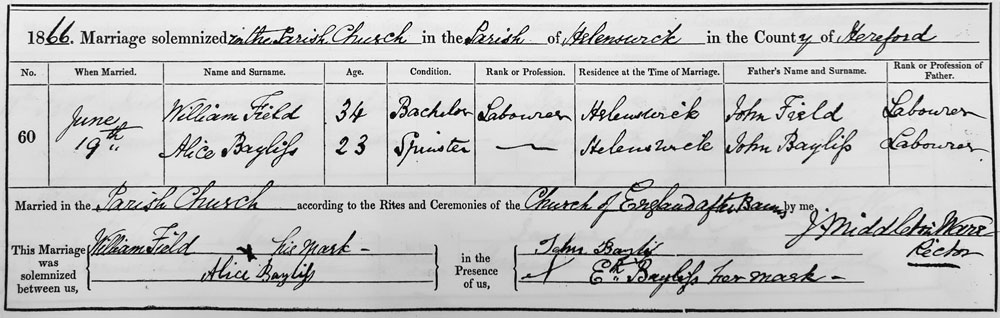 1866. Marriage solemnized in the Parish Church in the Parish of Helenswick in the County of Hereford
No. When Married. Name and Surname. Age. Condition. Rank or Profession. Residence at the Time of Marriage. Father's Name and Surname. Rank or Profession of Father.
60 June 19th William Field 34 Bachelor Labourer Helenswick John Field Labourer
Alice Bayliſs 23 Spinster — Helenswick John Bayliſs Labourer
Married in the Parish Church according to the Rites and Ceremonies of the Church of England after Banns by me,
J. Middleton Ware
Rector
This Marriage was solemnized between us,
William Field x his mark –
Alice Bayliſs
in the Presence of us,
John Bayliſs
Eth. Bayliſs her mark –